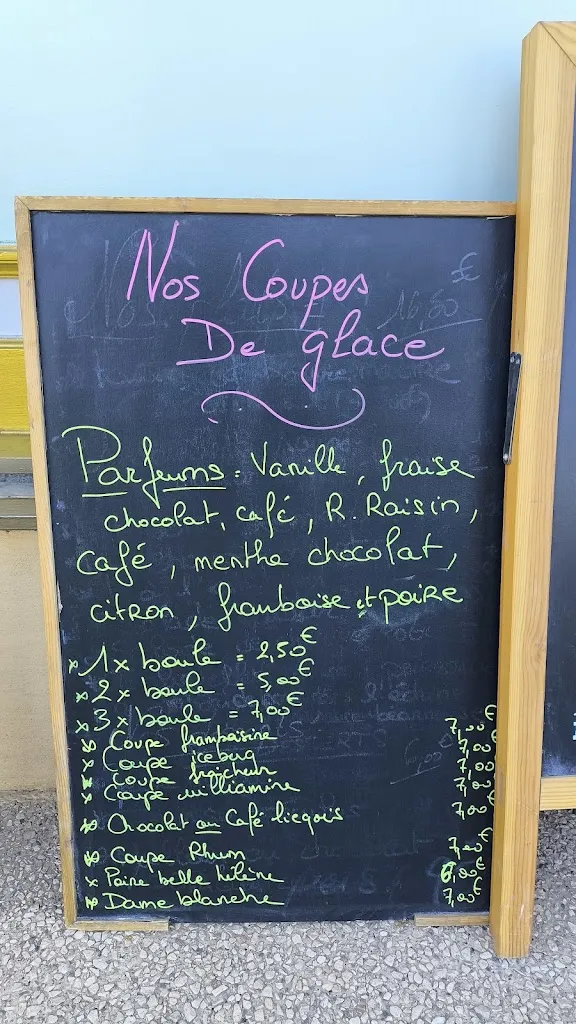 Nos Coupes
De glace
Parfums : Vanille, fraise
chocolat, café, R. Raisin,
Café, menthe chocolat,
citron, framboise et poire
x 1 x boule = 2,50€
x 2 x boule = 5,00€
x 3 x boule = 7,00€
x Coupe framboisine 7,00€
x Coupe iceberg 7,00€
x Coupe fraicheur 7,00€
x Coupe williamine 7,00€
x Chocolat ou Café liegois 7,00€
x Coupe Rhum 7,00€
x Poire belle hélène 6,00€
x Dame blanche 7,00€